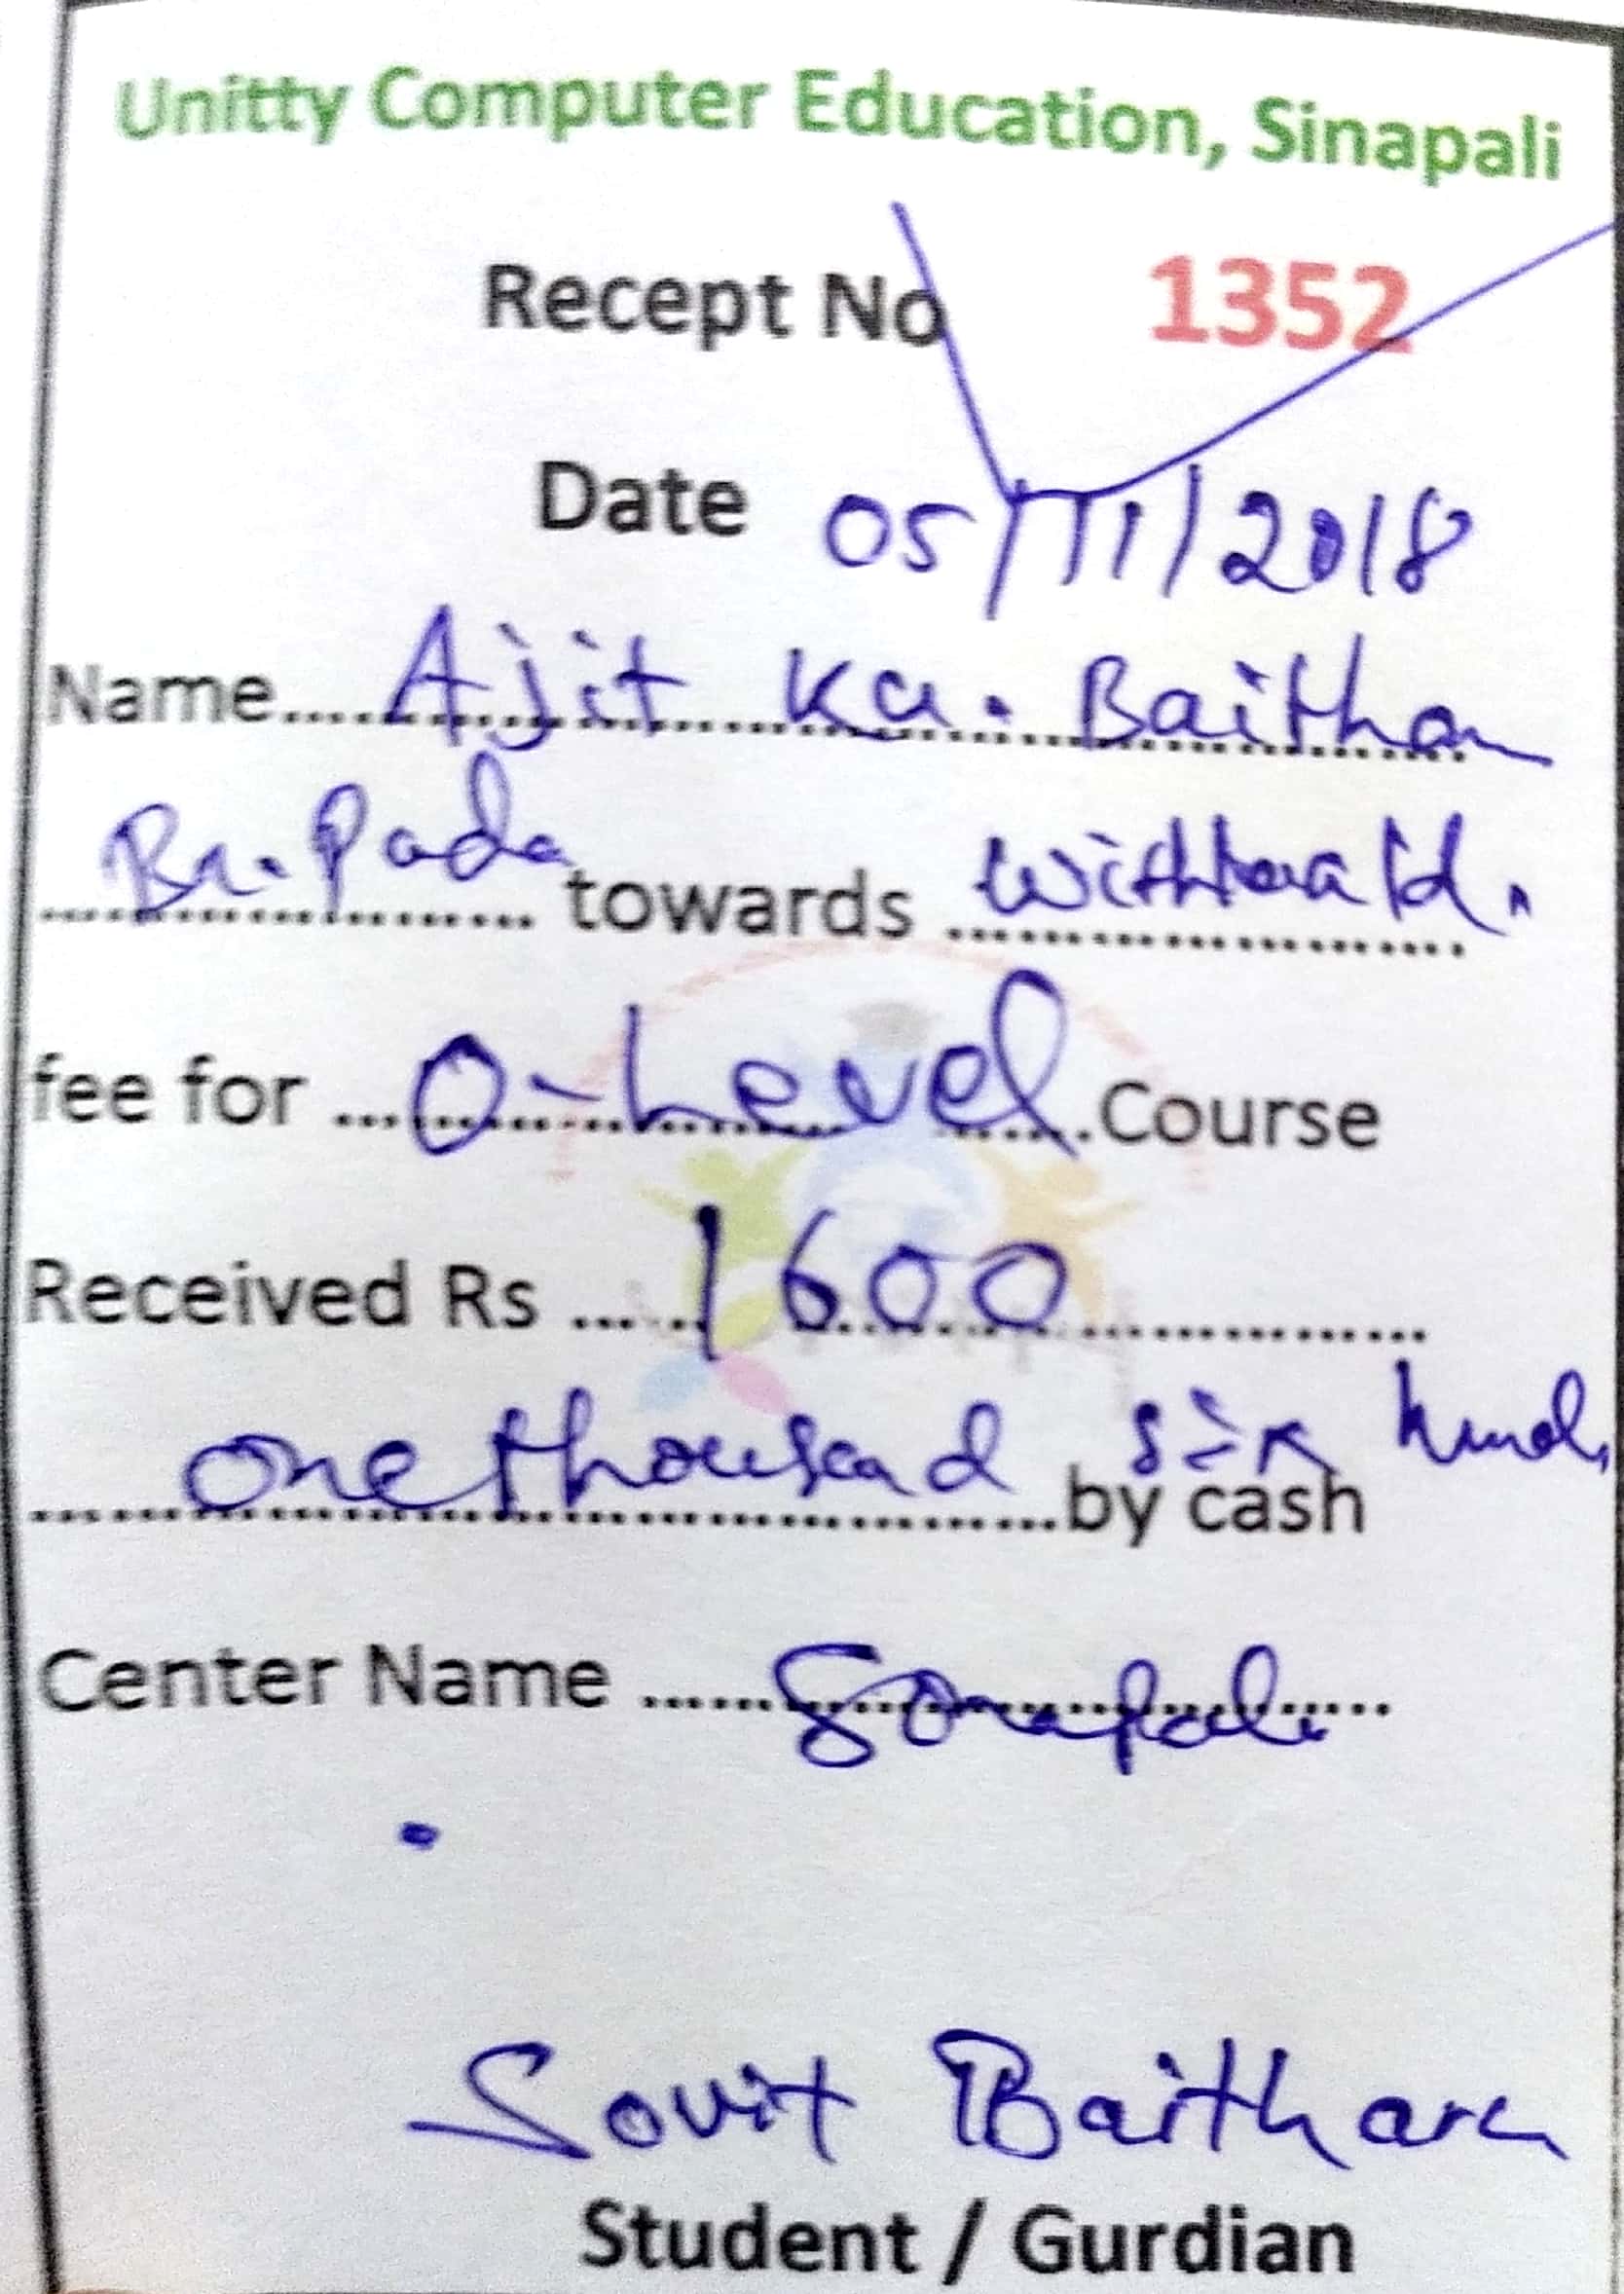 Unitty Computer Education, Sinapali
Recept No 1352
Date 05/11/2018
Name.... Ajit Ku. Baithan
Br. Pada towards
fee for ... O-Level ...Course
Received Rs .... 1600 ............
one thousand six hund.
............by cash
Center Name ......
Sovit Baitharu
Student / Gurdian